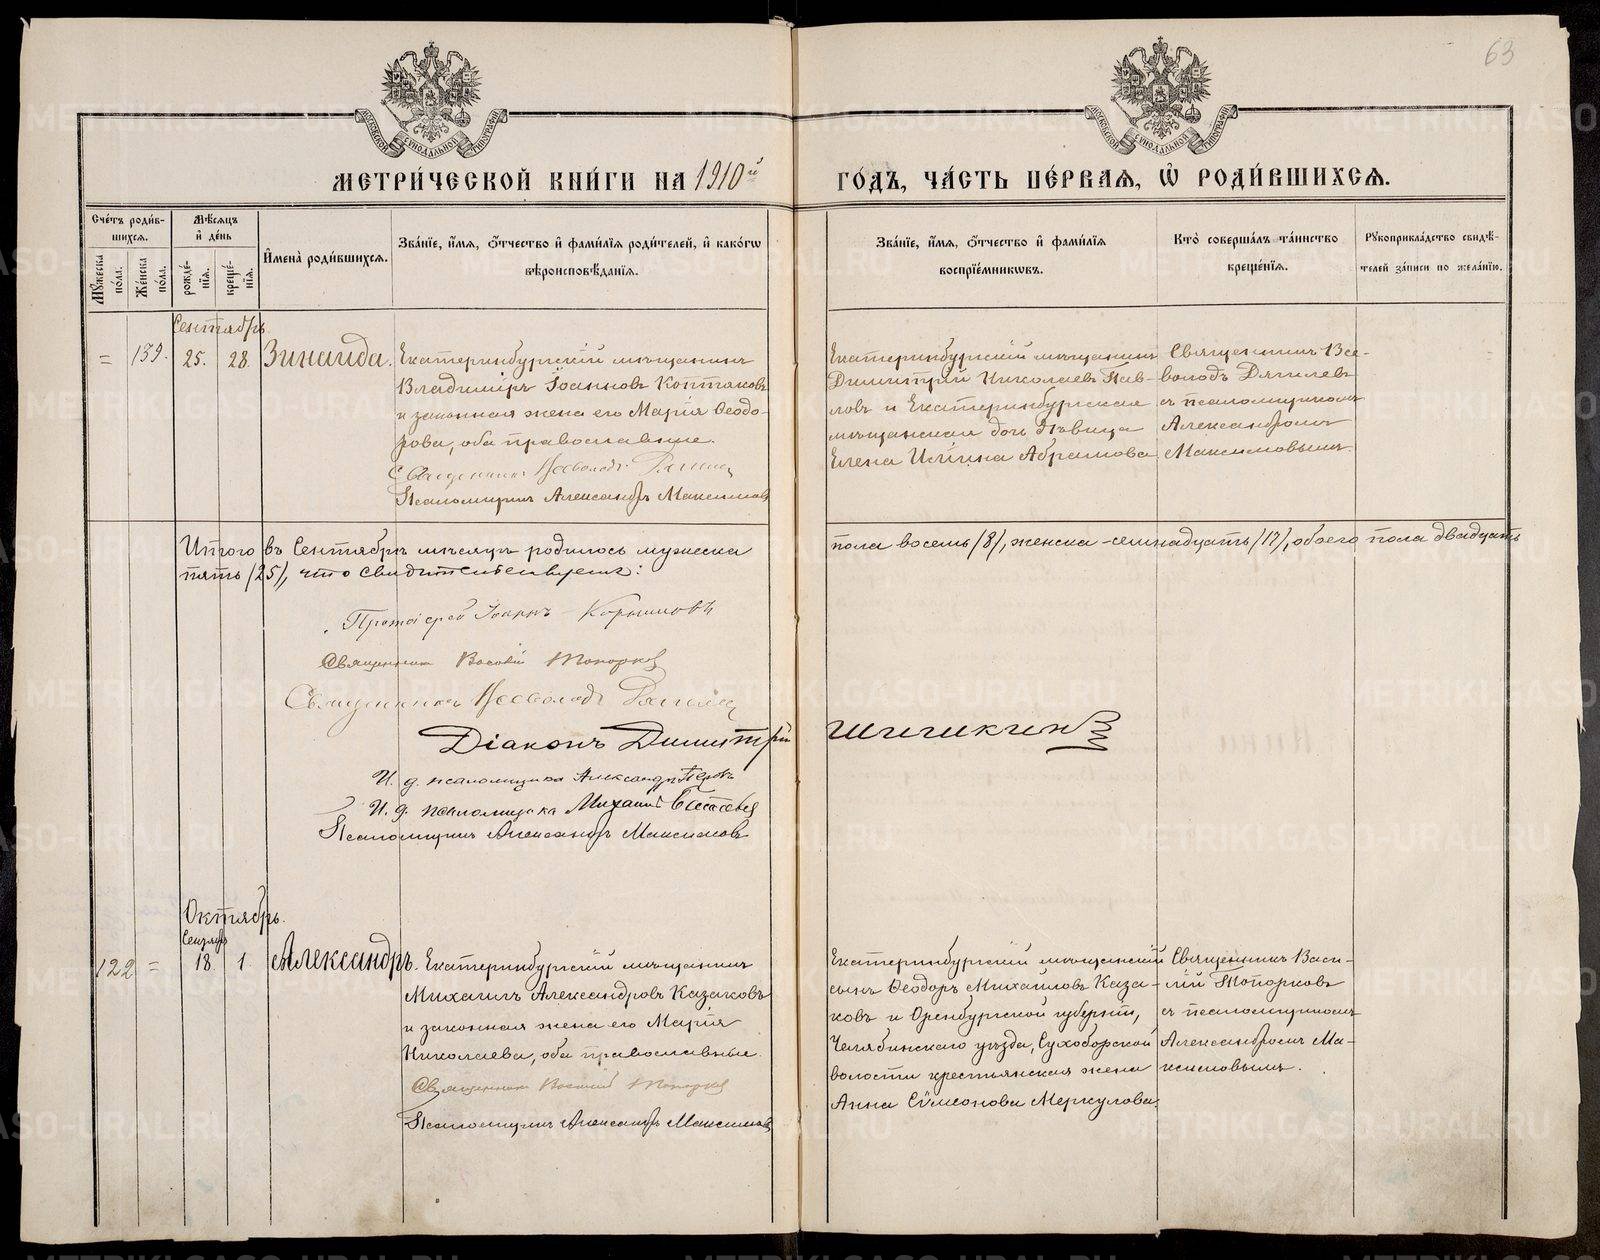 63
МОСКОВСКОЙ СѴНОДАЛЬНОЙ ТИПОГРАФІИ
МОСКОВСКОЙ СѴНОДАЛЬНОЙ ТИПОГРАФІИ
МЕТРИ́ЧЕСКОЙ КНИ́ГИ НА 1910й ГО́ДЪ, ЧА́СТЬ ПЕ́РВАЯ, Ѽ РОДИ́ВШИХСЯ.
Сче́тъ роди́в-
шихся.
Мѣ́сяцъ
и де́нь
Мꙋ́жеска по́ла.
Же́нска по́ла.
рожде́-
нїя.
креще́-
нїя.
Имена̀ роди́вшихся.
Зва́нїе, и́мя, о́тчество и фами́лїя роди́телей, и како́гѡ
вѣроисповѣ́данїя.
Зва́нїе, и́мя, о́тчество и фами́лїя
воспрїе́мникѡвъ.
Кто̀ соверша́лъ та́инство
креще́нїя.
Рꙋкоприкла́дство свидѣ́-
телей за́писи по жела́нїю.
Сентябрь
= 139. 25. 28. Зинаида.
Екатеринбургскій мѣщанинъ
Владиміръ Іоанновъ Коптяковъ
и законная жена его Марія Ѳеодо-
рова, оба православные.
Священникъ Всеволодъ Дягилев
Псаломщикъ Александръ Максимовъ
Екатеринбургскій мѣщанинъ
Димитрій Николаевъ Пав-
ловъ и Екатеринбургская
мѣщанская дочь дѣвица
Елена Иліина Абрамова
Священникъ Все-
володъ Дягилевъ
съ псаломщикомъ
Александромъ
Максимовымъ.
Итого въ Сентябрѣ мѣсяцѣ родилось мужеска пола восемь /8/, женска - семнадцать /17/, обоего пола двадцать
пять /25/, что свидѣтельствуемъ:
Протоіерей Іоаннъ
Священникъ Василій Топорков
Священникъ Всеволодъ Дягилев
Діаконъ Димитрій Шишкинъ
И. д. псаломщика Александръ
И. д. псаломщика Михаил
Псаломщикъ Александръ Максимовъ
Октябрь.
Сентябрь
122 = 18 1 Александръ.
Екатеринбургскій мѣщанинъ
Михаилъ Александровъ Казаковъ
и законная жена его Марія
Николаева, оба православные.
Священникъ Василій Топорков
Псаломщикъ Александръ Максимовъ
Екатеринбургскій мѣщанскій
сынъ Ѳеодоръ Михаиловъ Каза-
ковъ и Оренбургской губерніи,
Челябинскаго уѣзда, Сухоборской
волости крестьянская жена
Анна Сѵмеонова Меркулова.
Священникъ Васи-
лій Топорковъ
съ псаломщикомъ
Александромъ Ма-
ксимовымъ.
METRIKI.GASO-URAL.RU